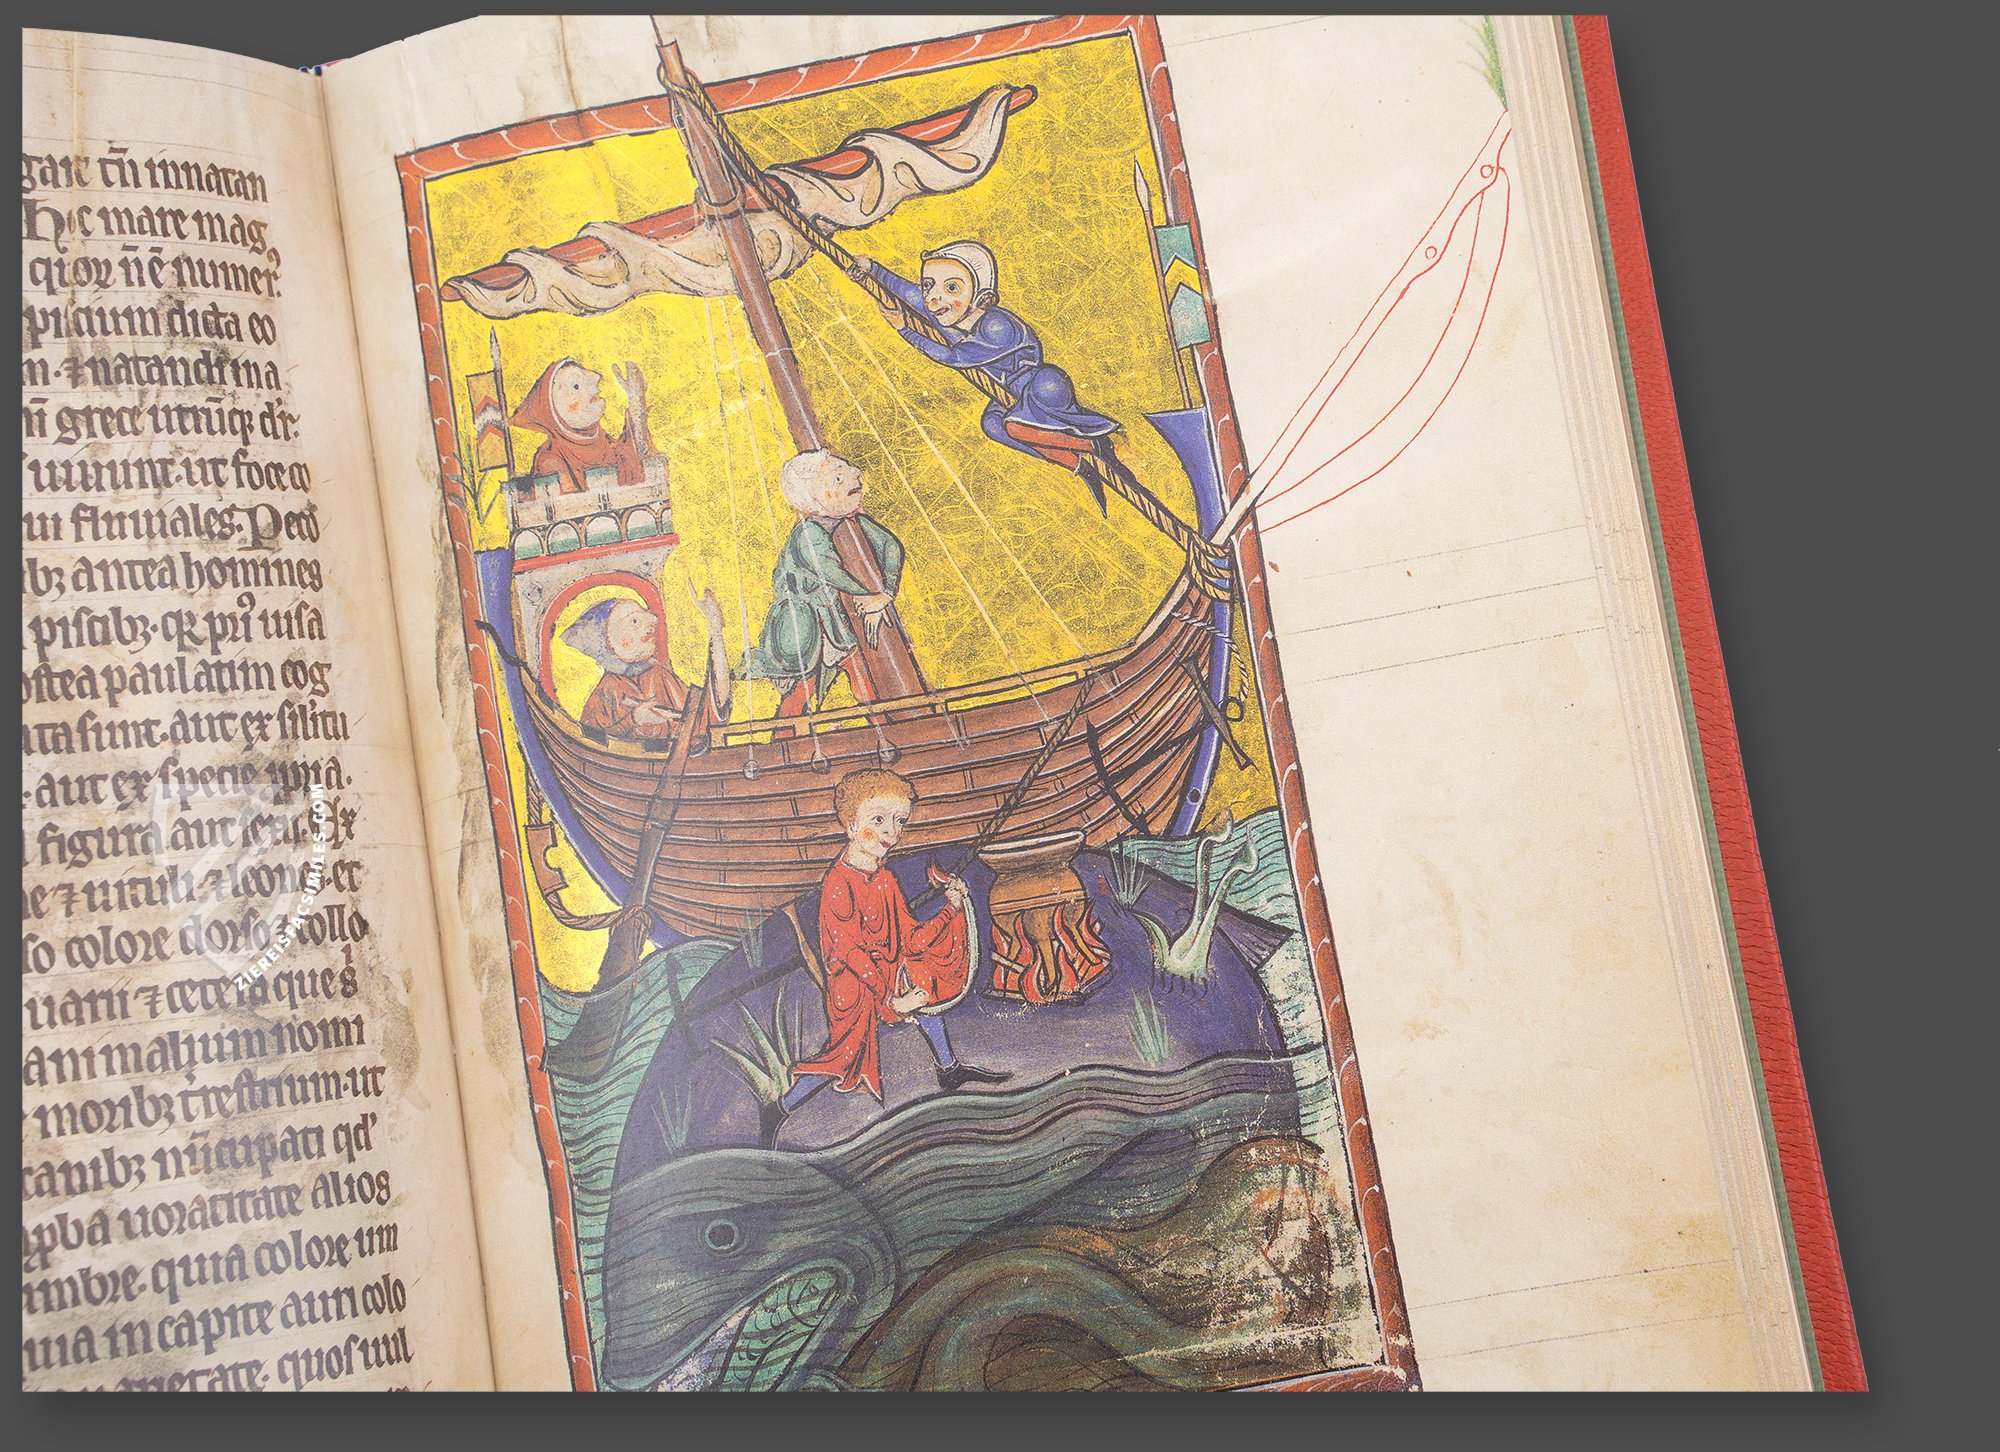 gare cū innatan
hoc mare mag
quor̄ nē numer᷒.
piscium dicta eo
natandi ma
grece utrūq; dr̄.
uiuunt. ut foce co
ui fluuiales. Peco
bꝫ antea homines
piscibꝫ. q̄ pri᷒ uisa
ostea paulatim cog
ata sunt. aut ex silitu
aut ex specie ipsa.
figura aut sexu. Ex
ne ⁊ uituli. ⁊ leones. et
so colore dorso ⁊ collo
uarii ⁊ cetera que s̄
animalium nomi
moribꝫ t̄restrium. ut
canibꝫ nūcupati qd̓
uoracitate alios
umbre. quia colore um
uia in capite auri colo
quos uul
ZIEREISFACSIMILES.COM